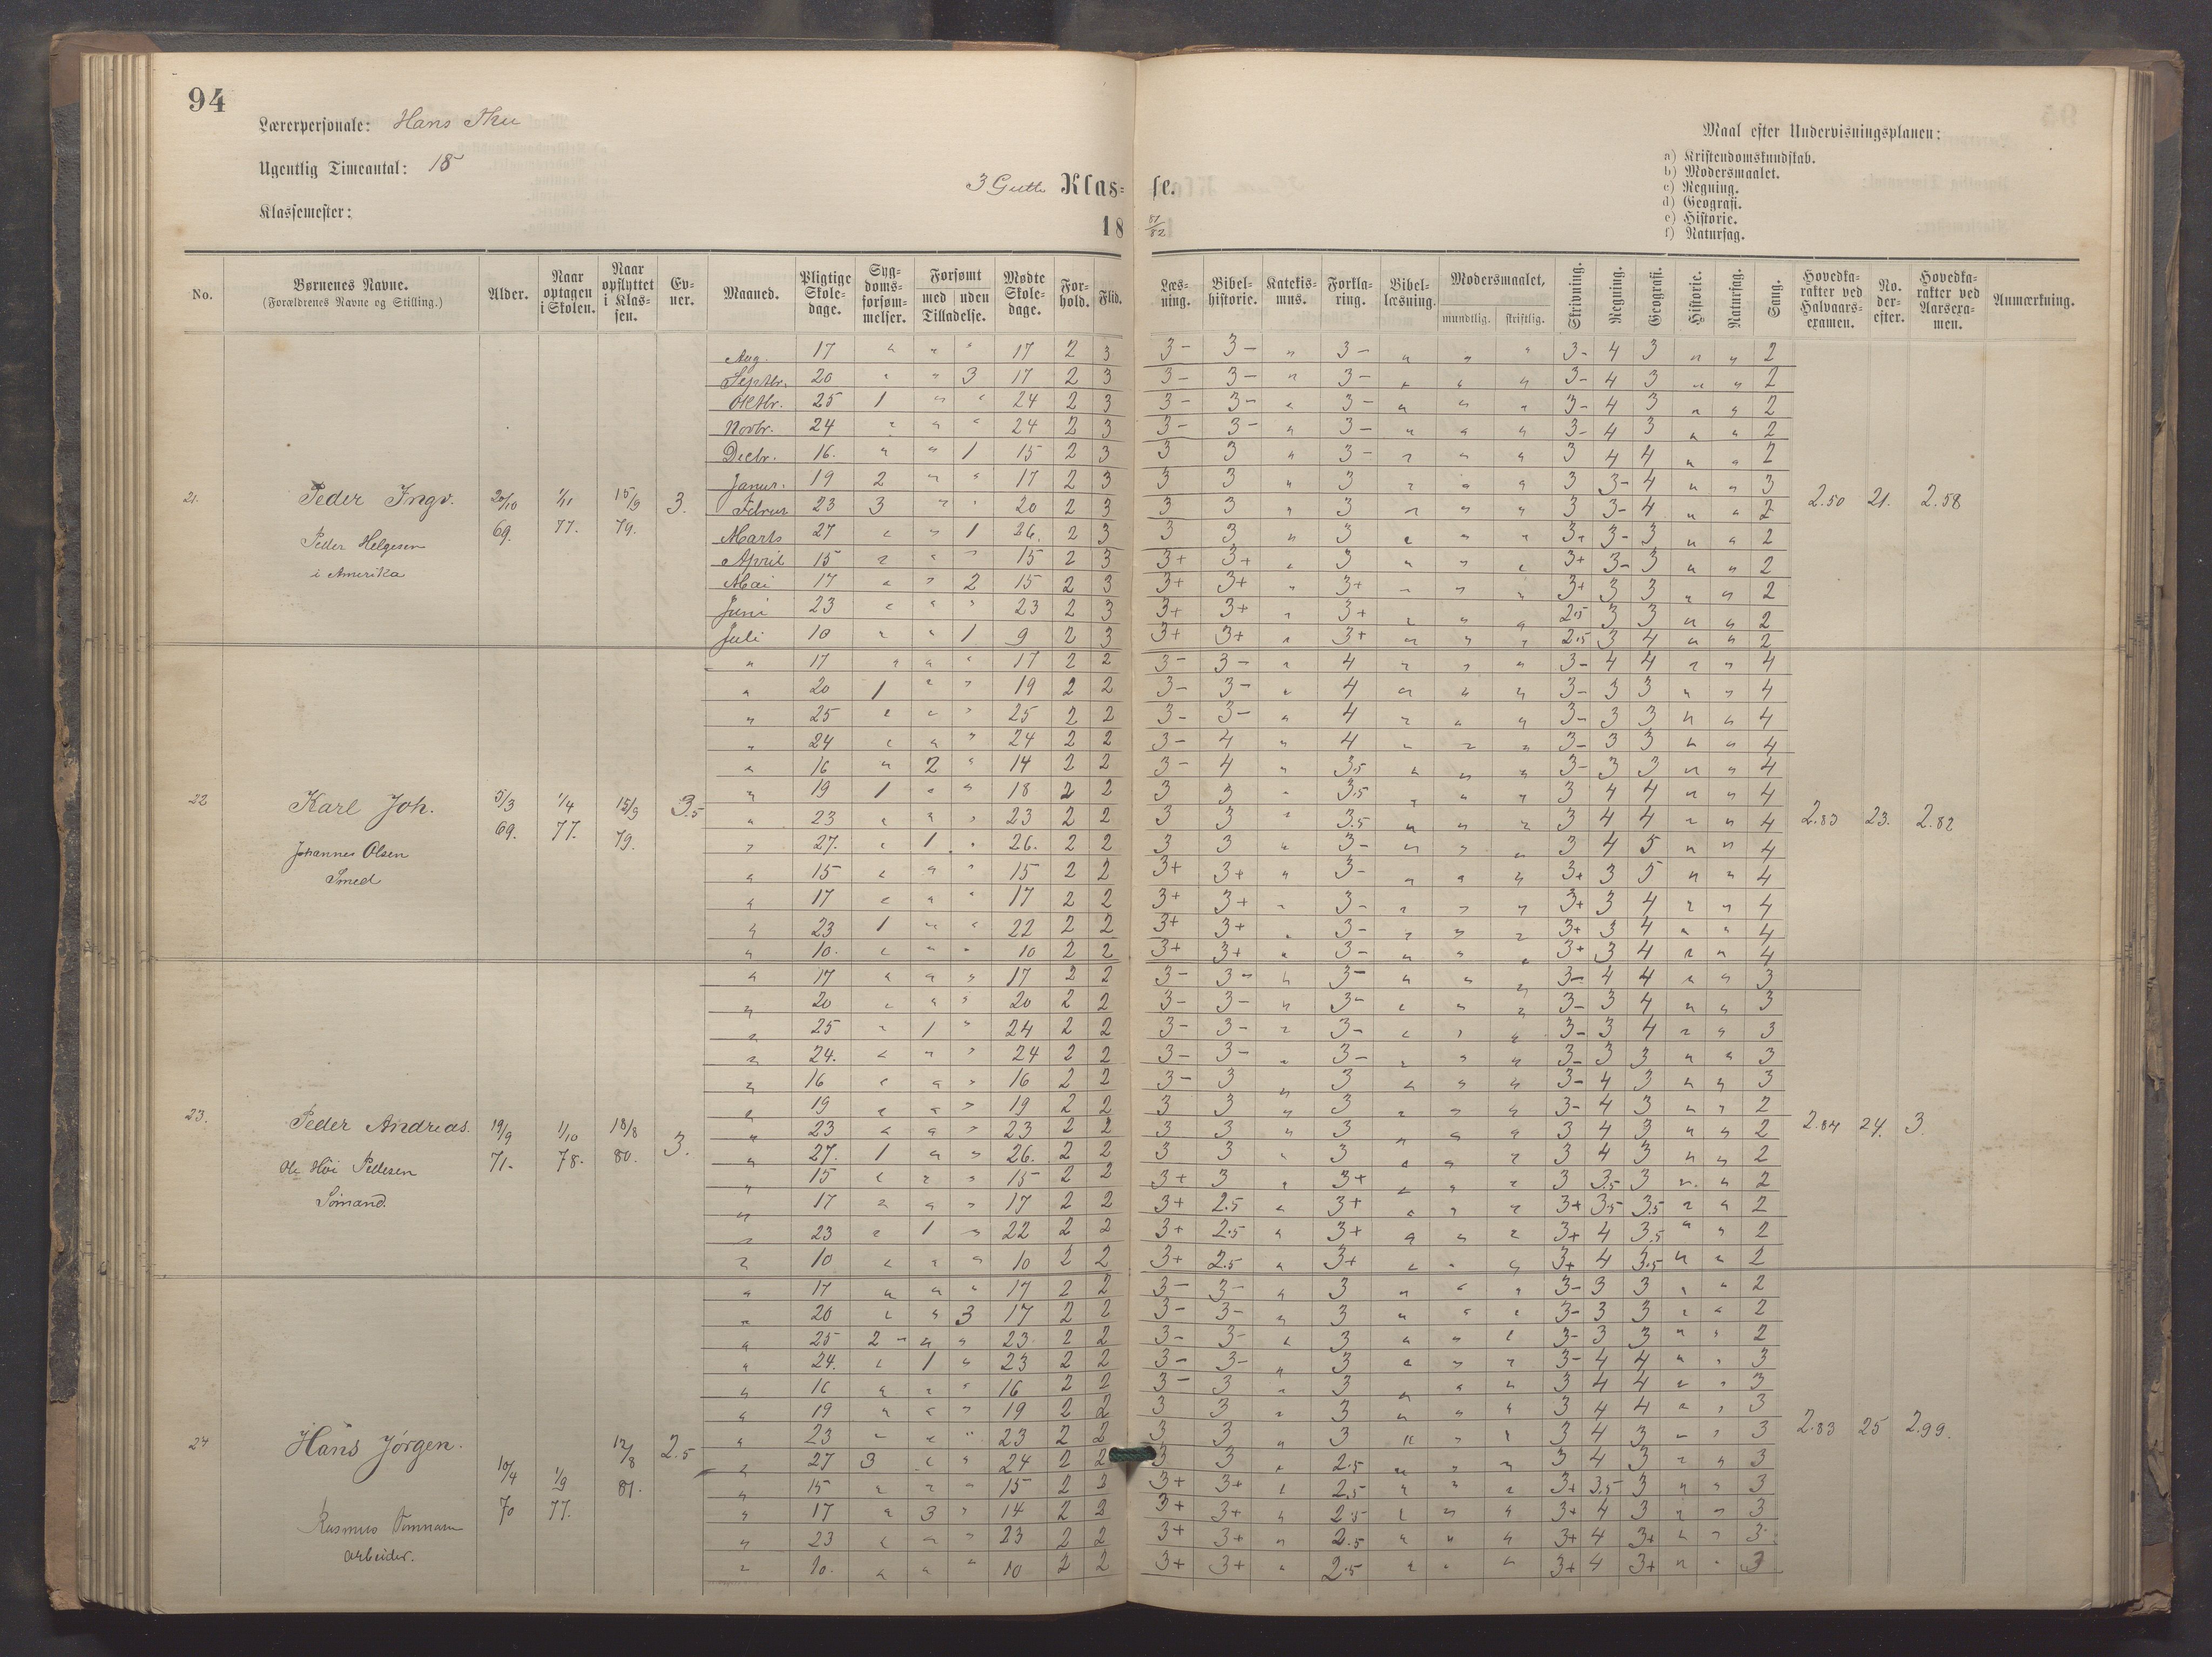 94
Lærerpersonale: Hans
Ugentlig Timeantal: 18
Klassemester:
3 Gutte Klas= se.
18 81/82
Maal efter Undervisningsplanen:
a) Kristendomskundskab.
b) Modersmaalet.
c) Regning.
d) Geografi.
e) Historie.
f) Naturfag.
No. Børnenes Navne. (Forældrenes Navne og Stilling.) Alder. Naar optagen i Skolen. Naar opflyttet i Klassen. Evner. Maaned. Pligtige Skoledage. Sygdomsforsømmelser. Forsømt med uden Tilladelse. Mødte Skoledage. Forhold. Flid. Læsning. Bibelhistorie. Katekismus. Forklaring. Bibellæsning. Modersmaalet, mundtlig. skriftlig. Skrivning. Regning. Geografi. Historie. Naturfag. Sang. Hovedkarakter ved Halvaarsexamen. No. derefter. Hovedkarakter ved Aarsexamen. Anmærkning.
21. Peder Ingv. 20/10 69. 1/11 77. 15/9 79. 3. 2.50 21. 2.58
Peder Helgesen
i Amerika
Aug. 17 " " " 17 2 3 3- 3- " 3- " " " 3- 4 3 " " 2
Septbr. 20 " " 3 17 2 3 3- 3- " 3- " " " 3- 4 3 " " 2
Oktbr. 25 1 " " 24 2 3 3- 3- " 3- " " " 3- 4 3 " " 2
Novbr. 24 " " " 24 2 3 3- 3- " 3- " " " 3- 4 3 " " 2
Decbr. 16. " " 1 15 2 3 3 3 " 3- " " " 3 4 4 " " 2
Janur. 19 2 " " 17 2 3 3 3 " 3 " " " 3 3- 4 " " 3
Februr 23 3 " " 20 2 3 3 3 " 3 " " " 3 3- 4 " " 2
Marts 27 " " 1 26. 2 3 3 3 " 3 " " " 3+ 3- 3 " " 2
April 15 " " " 15 2 3 3+ 3+ " 3 " " " 3+ 3- 3 " " 2
Mai 17 " " 2 15 2 3 3+ 3+ " 3+ " " " 3+ 3 3 " " 2
Juni 23 " " " 23 2 3 3+ 3+ " 3+ " " " 2.5 3 3 " " 2
Juli 10 " " 1 9 2 3 3+ 3+ " 3+ " " " 2.5 3 4 " " 2
22 Karl Joh. 5/3 69. 1/4 77. 15/9 79. 3.5 2.83 23. 2.82
Johannes Olsen
Smed
" 17 " " " 17 2 2 3- 3- " 4 " " " 3- 4 4 " " 4
" 20 1 " " 19 2 2 3- 3- " 4 " " " 3- 3 3 " " 4
" 25 " " " 25 2 2 3- 3- " 4 " " " 3- 3 3 " " 4
" 24 " " " 24 2 2 3- 4 " 4 " " " 3- 3 3 " " 4
" 16 " 2 " 14 2 2 3- 4 " 3.5 " " " 3- 3 3 " " 4
" 19 1 " " 18 2 2 3 3 " 3.5 " " " 3 4 4 " " 4
" 23 " " " 23 2 2 3 3 " 3.5 " " " 3 4 4 " " 4
" 27. " 1 " 26. 2 2 3 3 " 3- " " " 3 4 5 " " 4
" 15 " " " 15 2 2 3+ 3+ " 3- " " " 3+ 3 5 " " 4
" 17 " " " 17 2 2 3+ 3+ " 3- " " " 3+ 3 4 " " 4
" 23 1 " " 22 2 2 3+ 3+ " 3- " " " 3+ 3 4 " " 4
" 10. " " " 10 2 2 3+ 3+ " 3- " " " 3+ 3 4 " " 4
23. Peder Andreas. 19/9 71. 1/10 78. 18/8 80. 3. 2.84 24. 3
Ole Höi Pedersen
Sömand.
" 17 " " " 17 2 2 3- 3- " 3- " " " 3- 4 4 " " 3
" 20 " " " 20 2 2 3- 3- " 3- " " " 3- 3 4 " " 3
" 25 " 1 " 24 2 2 3- 3- " 3- " " " 3- 3 4 " " 3
" 24. " " " 24 2 2 3- 3- " 3- " " " 3- 3 3 " " 3
" 16 " " " 16 2 2 3- 3 " 3 " " " 3- 4 3 " " 3
" 19 " " " 19 2 2 3 3 " 3 " " " 3- 4 3 " " 2
" 23 " " " 23 2 2 3 3 " 3 " " " 3 4 3 " " 2
" 27. 1 " " 26. 2 2 3 3 " 3 " " " 3 4 3 " " 2
" 15 " " " 15 2 2 3+ 3 " 3+ " " " 3 3.5 3 " " 2
" 17 " " " 17 2 2 3+ 2.5 " 3+ " " " 3+ 3.5 3.5 " " 2
" 23 " 1 " 22 2 2 3+ 2.5 " 3+ " " " 3+ 4 3.5 " " 2
" 10 " " " 10 2 2 3+ 2.5 " 3+ " " " 3+ 4 3.5 " " 2
24 Hans Jörgen. 10/4 70 1/9 77. 12/8 81. 2.5 2.83 25 2.99.
Rasmus
Arbeider.
" 17 " " " 17 2 2 3- 3- " 3 " " " 3- 3 3 " " 2
" 20 " " 3 17 2 2 3- 3- " 3 " " " 3- 3 3 " " 2
" 25 2 " " 23 2 2 3- 3- " 3 " " " 3- 3 3 " " 2
" 24. " 1 " 23 2 2 3- 3- " 3 " " " 3- 4 4 " " 3
" 16 " " " 16 2 2 3- 3 " 3 " " " 3 4 4 " " 3
" 19 " " " 19 2 2 3 3 " 3 " " " 3 4 4 " " 3
" 23 " " " 23 2 2 3 3 " 3 " " " 3 4 3 " " 3
" 27 3 " " 24 2 2 3 3 " 2.5 " " " 3 4 3 " " 3
" 15 " " " 15 2 2 3+ 3+ " 2.5 " " " 3+ 3.5 3 " " 3
" 17 " 3 " 14 2 2 3+ 3+ " 2.5 " " " 3+ 4 3 " " 3
" 23 " " " 23 2 2 3+ 3+ " 2.5 " " " 3+ 4 3+ " " 3
" 10. " " " 10 2 2 3+ 3+ " 2.5 " " " 3+ 4 3+ " " 3